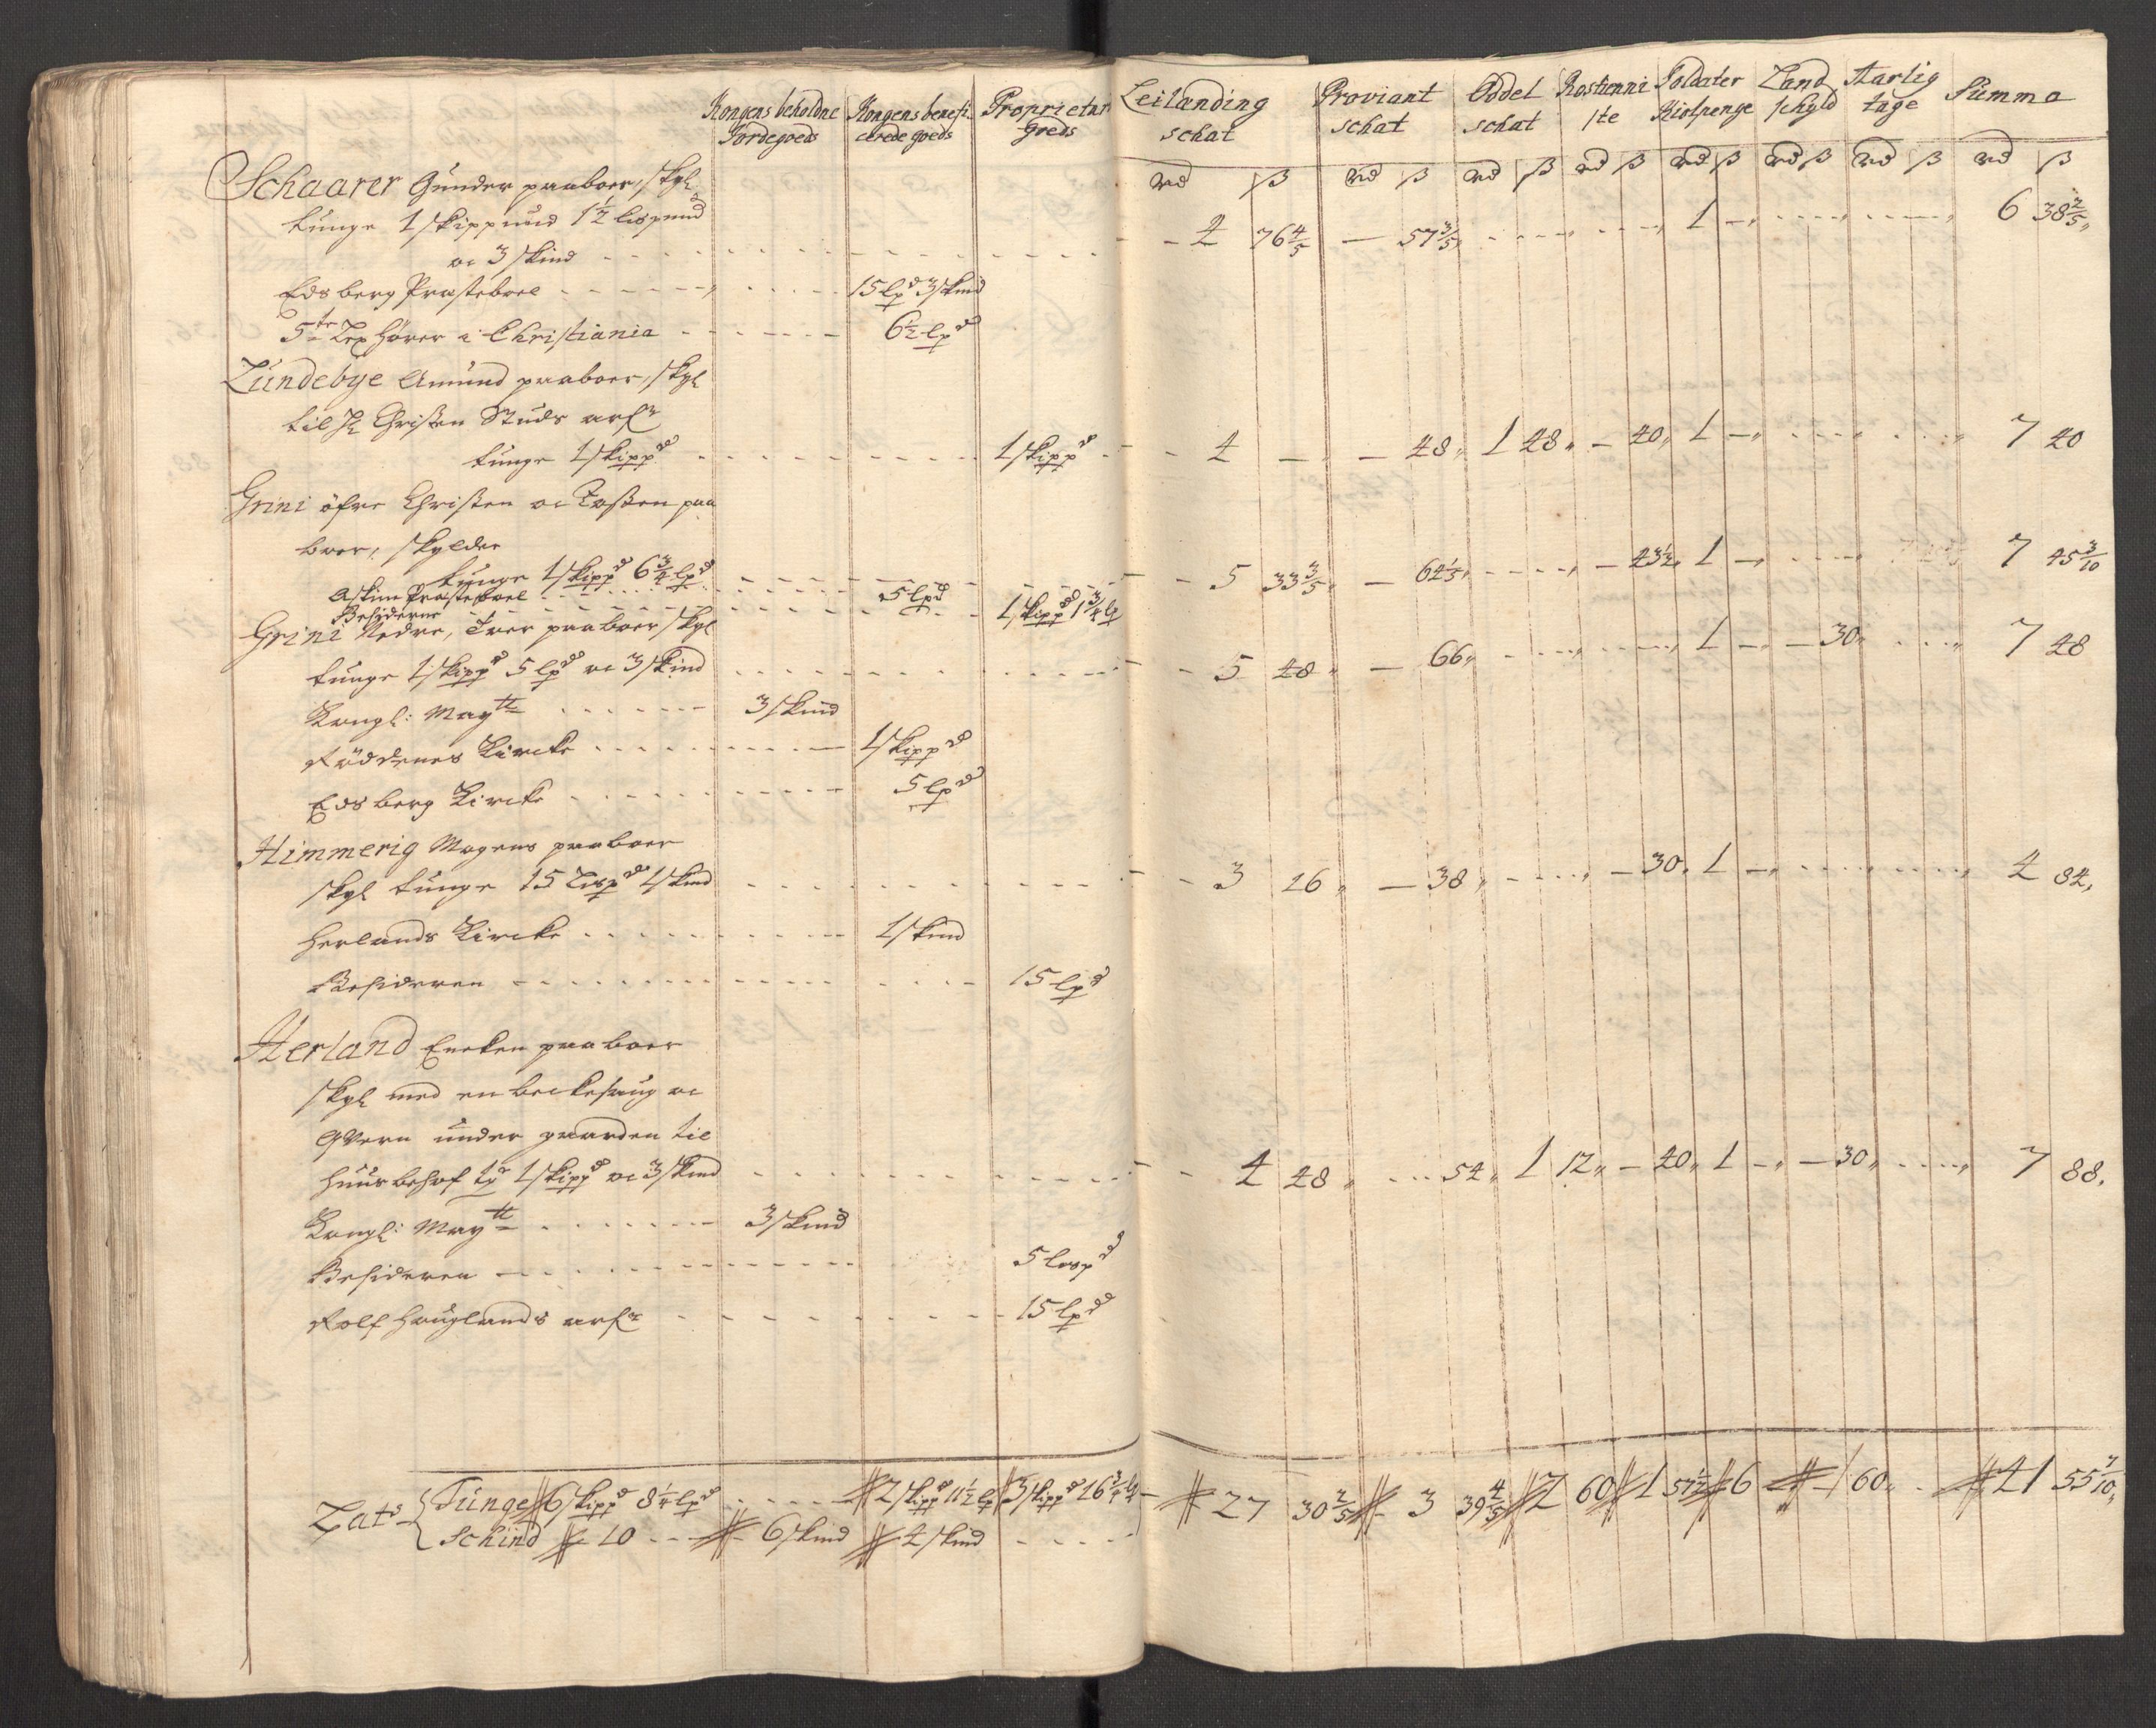 Kongens beholdne Jordegoeds | Kongens benefi- cerede goeds | Proprietar Goeds | Leilanding schat | Proviant schat | Oddel schat | Rostienni ste | Soldater Kiolpenge | Land schyld | Aarlig tage | Summa
Rd ß | Rd ß | Rd ß | Rd ß | Rd ß | Rd ß | Rd ß | Rd ß
Schaarer Gunder paaboer, skyl
tunge 1 skippund 1½ lispund
oc 3 skind - - - 4 76 4/5 — 57 3/5 - - - 1 — - - - 6 38 2/5
Edsberg Præsteboel - - - 15 lpd 3 skind
5te Lex hører i Christiania - - - 6½ lpd
Lundebye Amund paaboer, skyl
til Sl Christen Studs arfr
tunge 1 skippd - - - 1 skippd - - 4 — — 48 1 48 — 40 1 — - - - 7 40
Grini öfre Christen oc Torsten paa
boer, skylder
tunge 1 skippd 6¾ lpd - - - 5 33 3/5 — 64 1/5 - - - — 43½ 1 — - - - 7 45 3/10
Askim Præsteboel - - - 5 lpd
Besidderne - - - 1 skippd 1¾ lp
Grini Nedre, Iver paaboer skyl
tunge 1 skippd 5 lpd oc 3 skind - - - 5 48 — 66 - - - 1 — — 30 - - - 7 48
Kongl: Maytt - - - 3 skind
Röddenes Kircke - - - 1 skippd
Edsberg Kircke - - - 5 lpd
Himmerig Mogens paaboer
skyl tunge 15 Lispd 1 skind - - - 3 16 — 38 - - - — 30 1 — - - - 4 84
Herlands Kircke - - - 1 skind
Besidderen - - - 15 lpd
Herland Encken paaboer
skyl med en beckesaug oc
qvern under gaarden til
huusbehof tg 1 skippd oc 3 skind - - - 4 48 - - - 54 1 12 — 40 1 — — 30 - - - 7 88
Kongl: Maytt - - - 3 skind
Besidderen - - - 5 lispd
Rolf Houglands arfr - - - 15 lpd
Lats Tunge 6 skippd 8¼ lpd - - - 2 skippd 11½ lp 3 skippd 16¾ lp - 27 30 2/5 3 39 4/5 2 60 1 57½ 6 — 1 60 - 41 55 7/10
Schind 10 - - - 6 skind 4 skind - - -